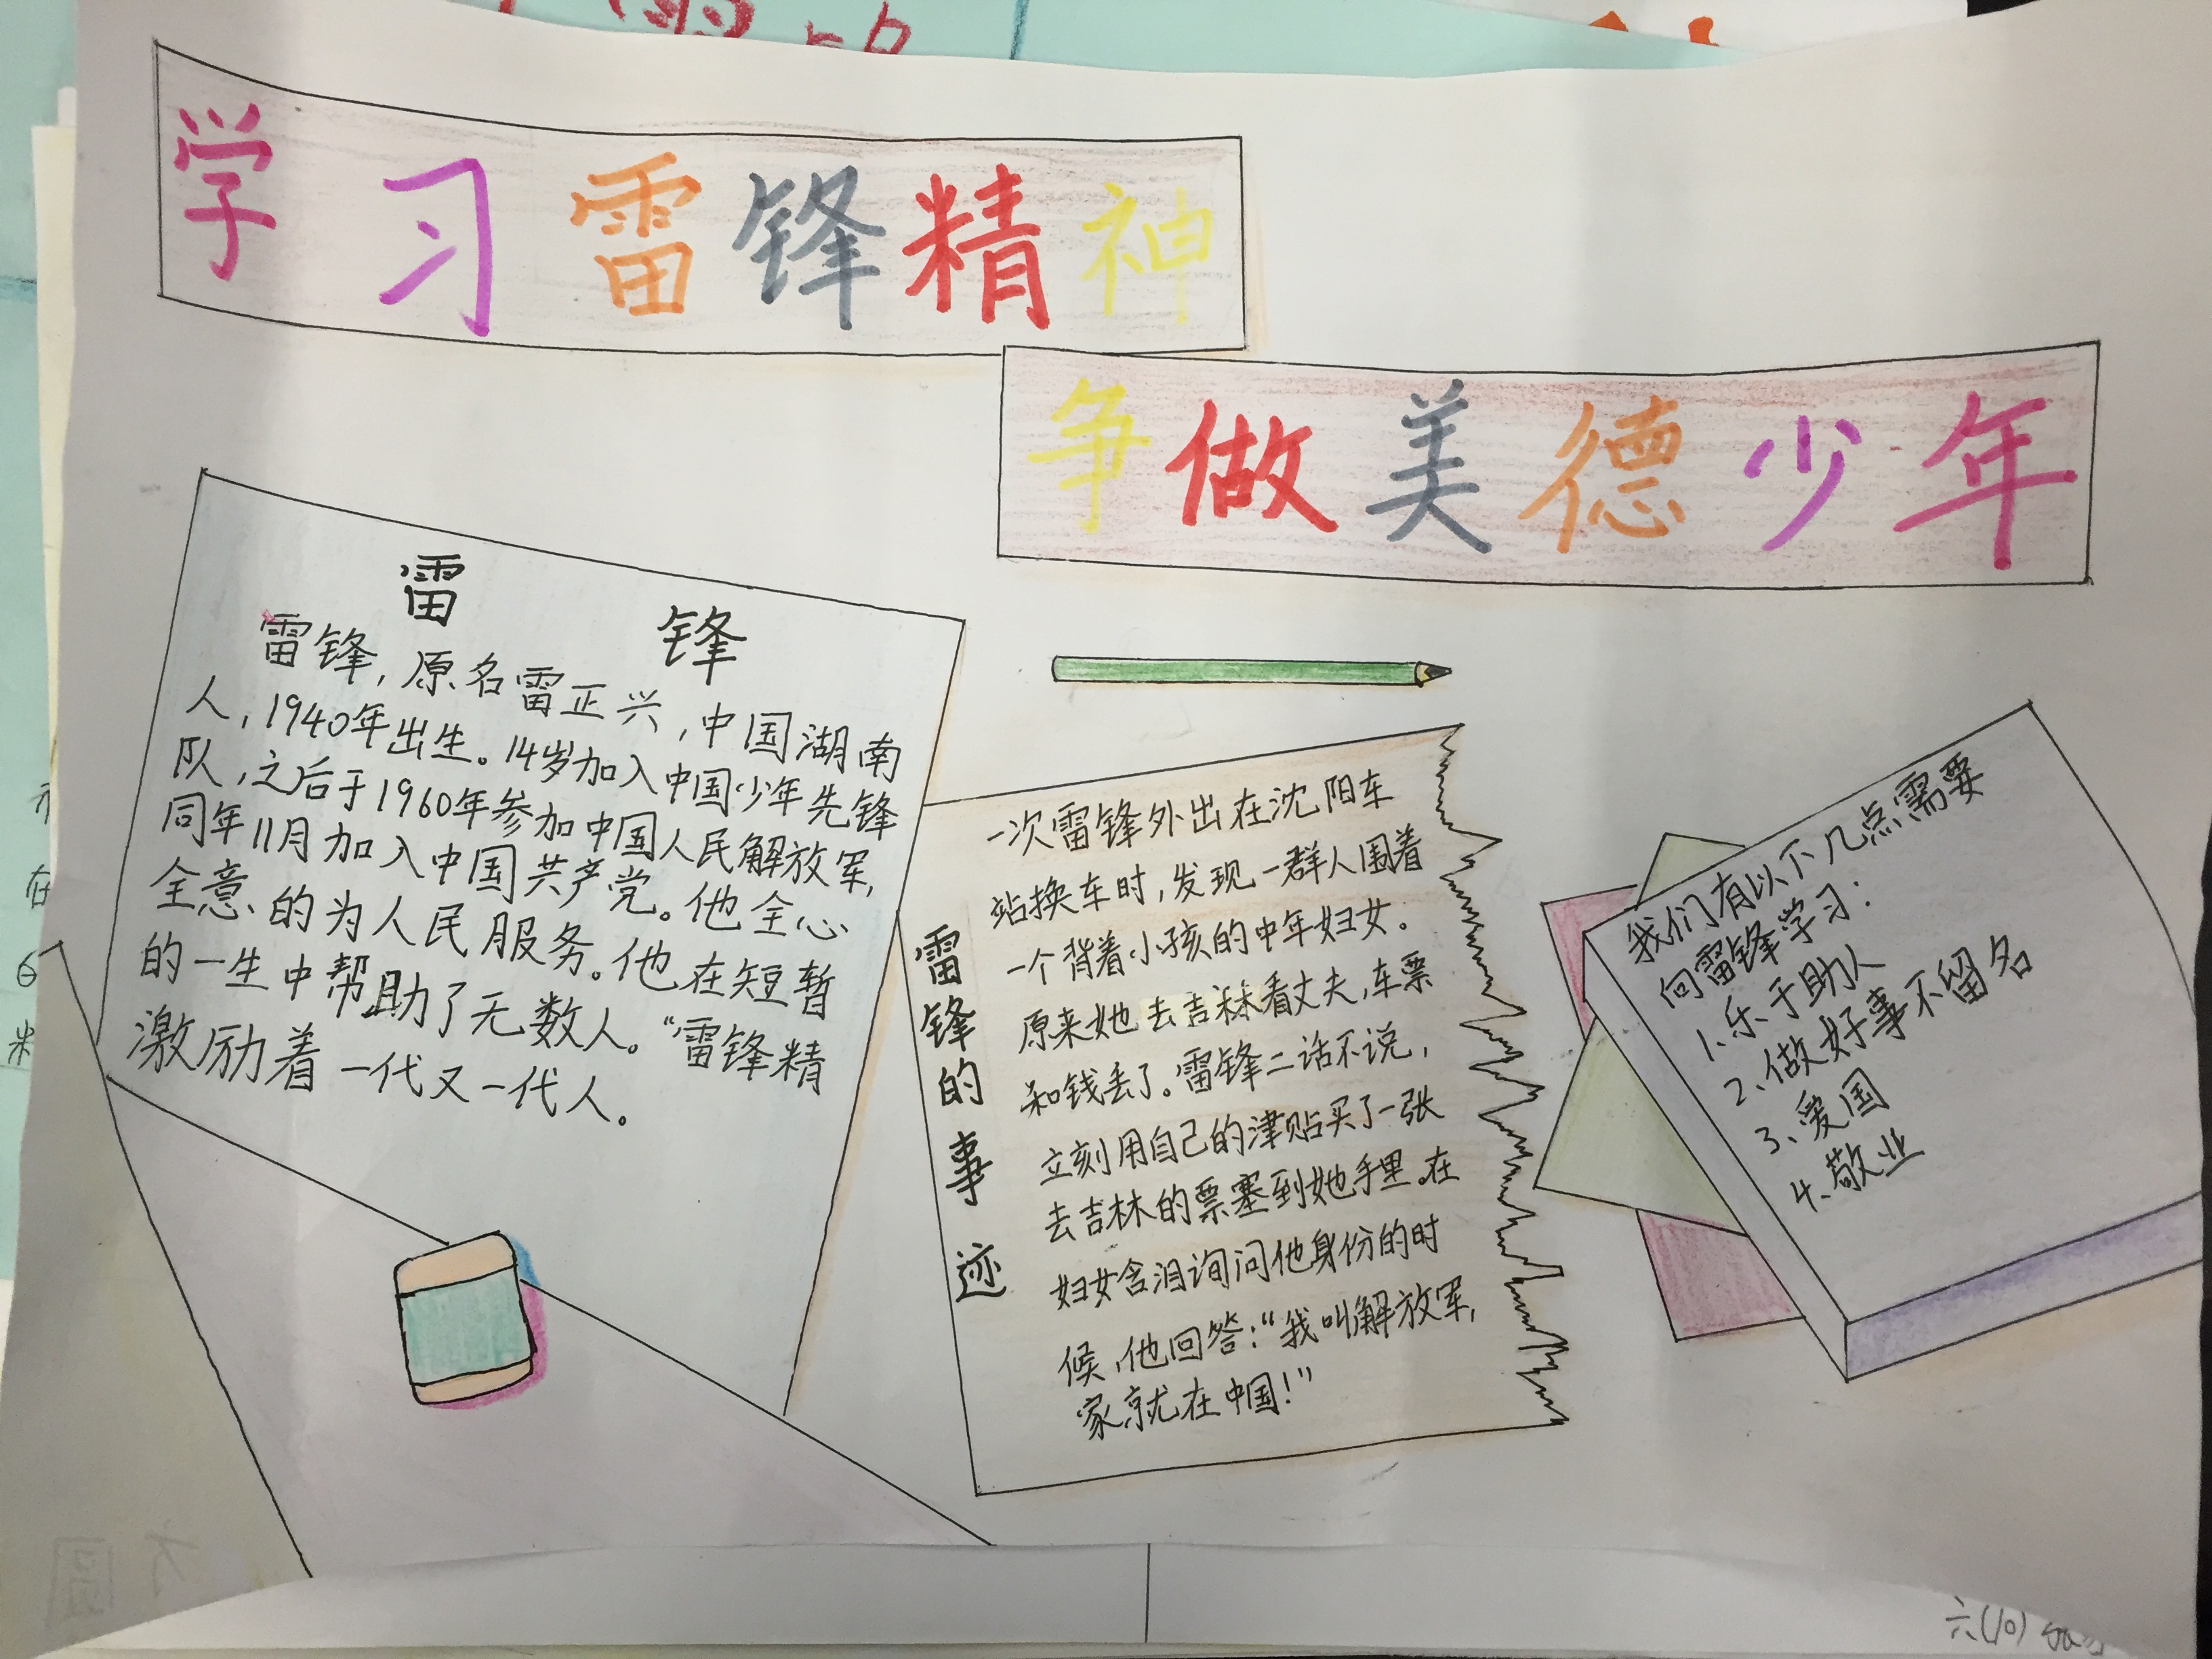 学习雷锋精神
争做美德少年
雷锋
雷锋，原名雷正兴，中国湖南
人，1940年出生。14岁加入中国少年先锋
队，之后于1960年参加中国人民解放军，
同年11月加入中国共产党。他全心
全意的为人民服务。他在短暂
的一生中帮助了无数人。“雷锋精
激励着一代又一代人。
雷锋的事迹
一次雷锋外出在沈阳车
站换车时，发现一群人围着
一个背着小孩的中年妇女。
原来她去吉林看丈夫，车票
和钱丢了。雷锋二话不说，
立刻用自己的津贴买了一张
去吉林的票塞到她手里。在
妇女含泪询问他身份的时
候，他回答：“我叫解放军，
家就在中国！”
我们有以下几点需要
向雷锋学习：
1、乐于助人
2、做好事不留名
3、爱国
4、敬业
六(10)